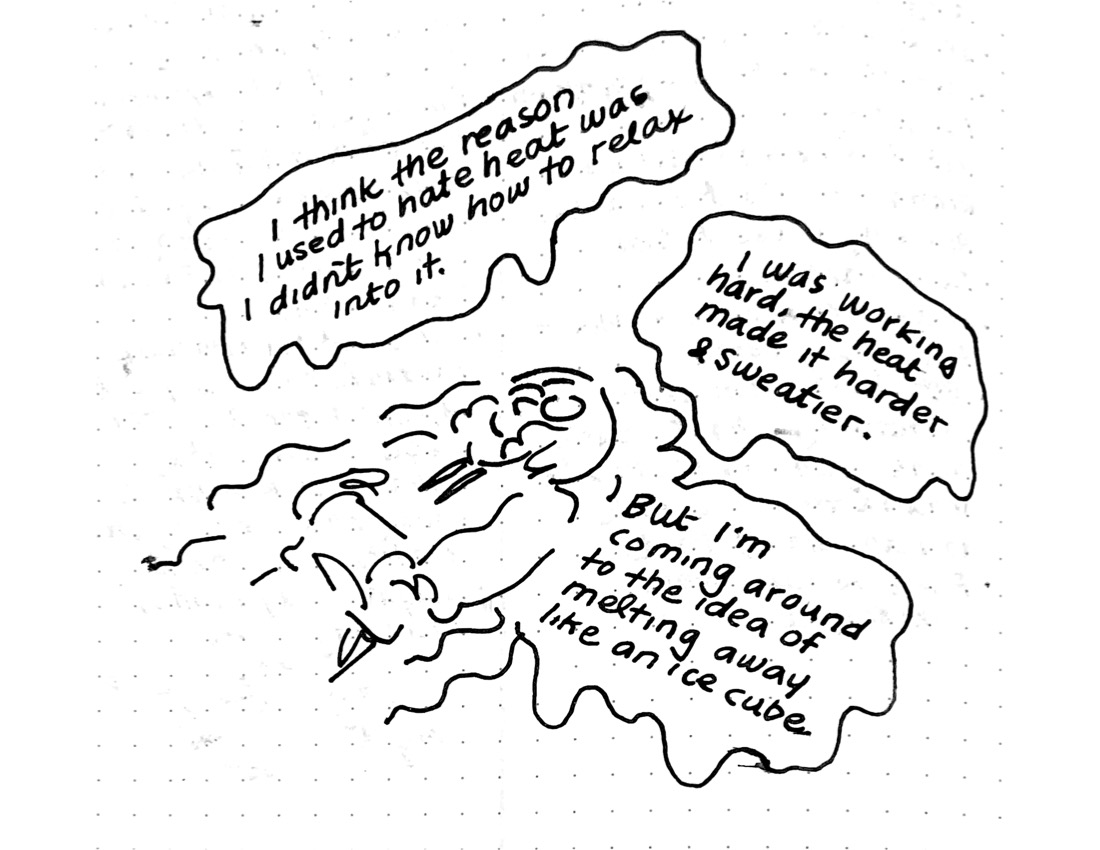 I think the reason
I used to hate heat was
I didn't know how to relax
into it.
I was working
hard, the heat
made it harder
& sweatier.
But I'm
coming around
to the idea of
melting away
like an ice cube